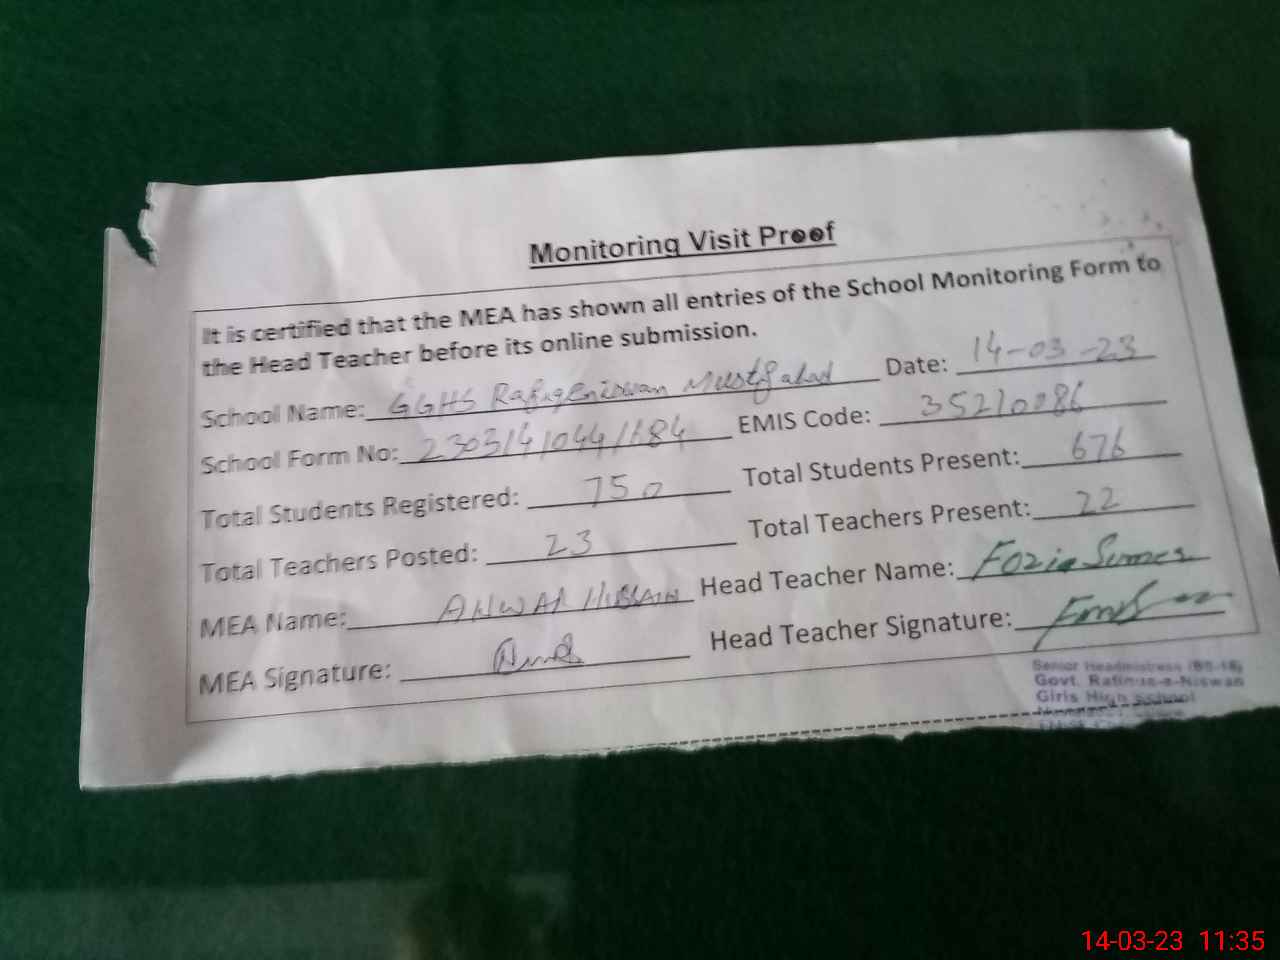 Monitoring Visit Proof
It is certified that the MEA has shown all entries of the School Monitoring Form to
the Head Teacher before its online submission.
School Name: GGHS Rafiqeniswan Mustfabad Date: 14-03-23
School Form No: 23031410441684 EMIS Code: 35210086
Total Students Registered: 750 Total Students Present: 676
Total Teachers Posted: 23 Total Teachers Present: 22
MEA Name: ANWAR HUSSAIN Head Teacher Name: Fozia
MEA Signature: Head Teacher Signature:
Senior Headmistress (BS-18)
Govt. Rafiq-ue-Niswan
Girls High School
14-03-23 11:35